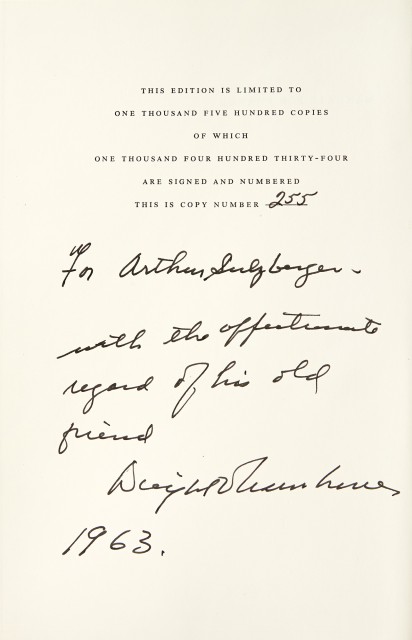 THIS EDITION IS LIMITED TO
ONE THOUSAND FIVE HUNDRED COPIES
OF WHICH
ONE THOUSAND FOUR HUNDRED THIRTY-FOUR
ARE SIGNED AND NUMBERED
THIS IS COPY NUMBER 255
For Arthur Sulzberger -
with the affectionate
regard of his old
friend
Dwight D Eisenhower
1963.